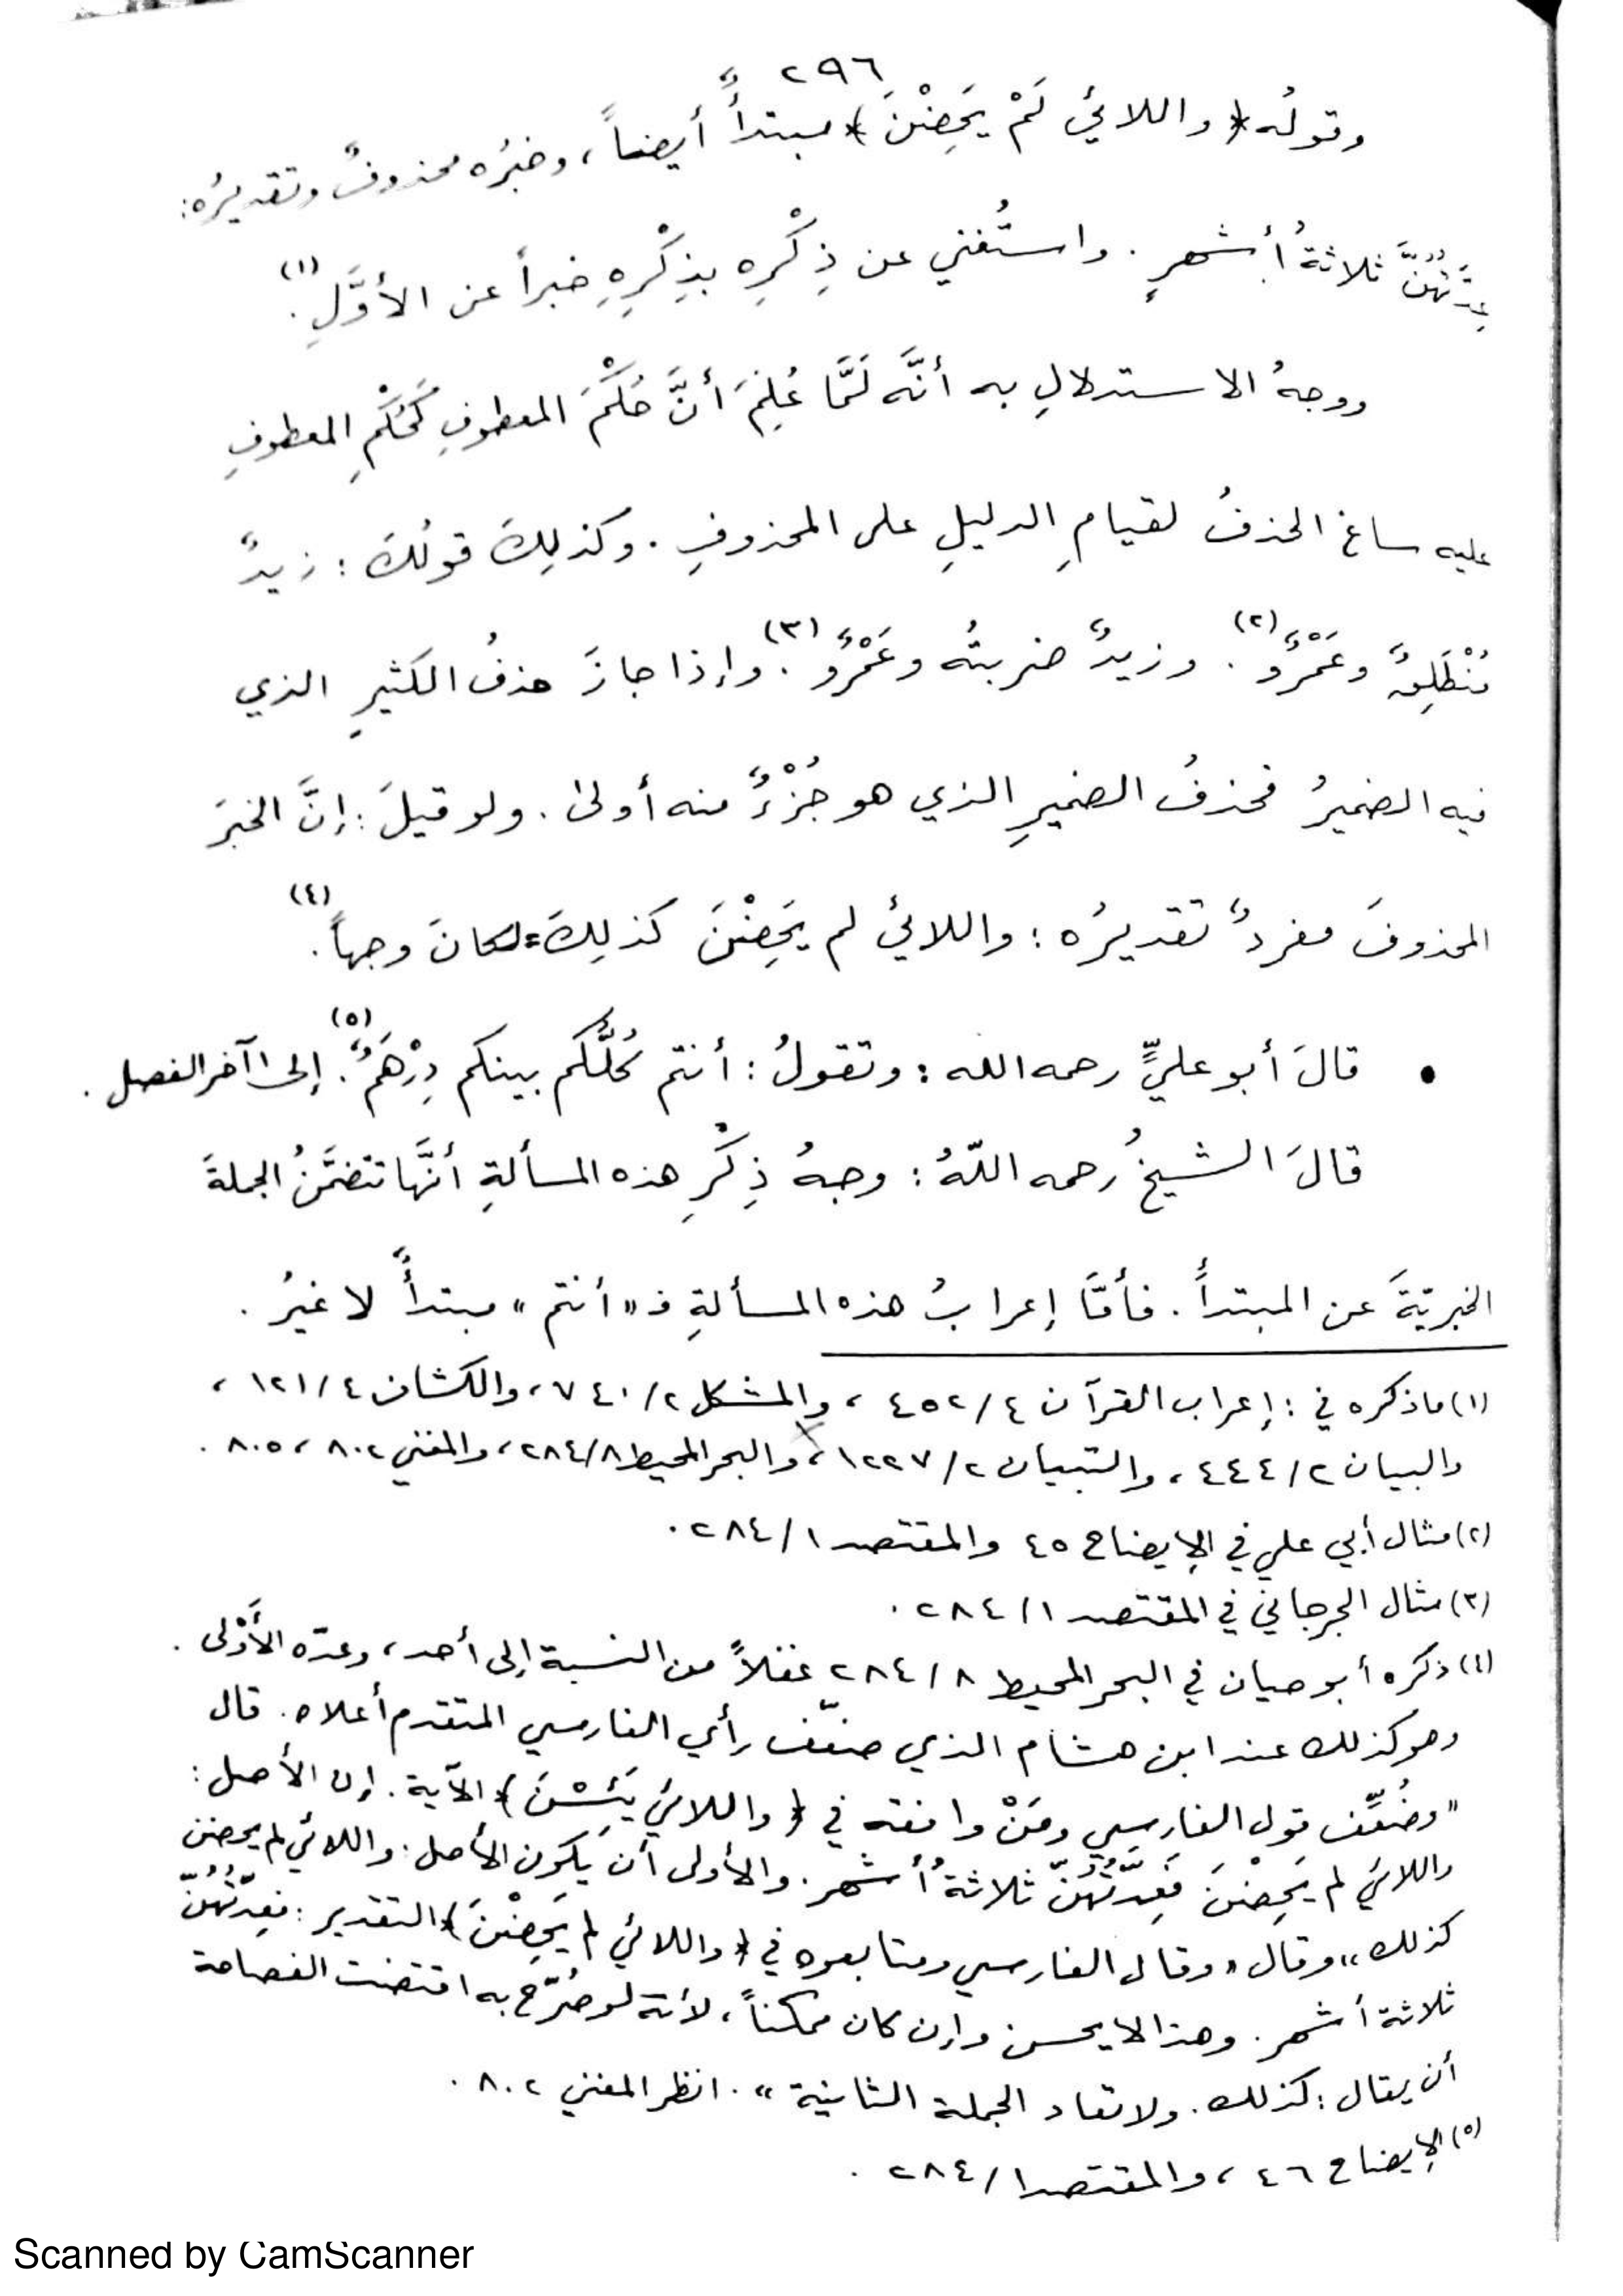 ٢٩٦
وقولُه ﴿ واللائي لَمْ يَحِضْنَ ﴾ مبتدأٌ أيضاً، وخبرُه محذوفٌ وتقديرُه:
عِدَّتُهُنَّ ثلاثةُ أشهرٍ . واستُغني عن ذِكْرِه بذِكْرِهِ خبراً عن الأوَّلِ (١) .
ووجهُ الاستدلالِ به أنَّه لَمَّا عُلِمَ أنَّ حُكْمَ المعطوفِ كَحُكْمِ المعطوفِ
عليه ساغ الحذفُ لقيامِ الدليلِ على المحذوفِ . وكذلِكَ قولُكَ : زيدٌ
مُنْطَلِقٌ وعَمْرٌو (٢) . وزيدٌ ضربتُه وعَمْرٌو (٣) . وإذا جازَ حذفُ الكثيرِ الذي
فيه الضميرُ فحذفُ الضميرِ الذي هو جُزْءٌ منه أولى . ولو قيلَ : إنَّ الخبرَ
المحذوفَ مفردٌ تقديرُه : واللائي لم يَحِضْنَ كذلِكَ = لكانَ وجهاً (٤) .
• قالَ أبو عليٍّ رحمه الله : وتقولُ : أنتم كُلُّكم بينكم دِرْهَمٌ (٥) . إلى آخر الفصل .
قالَ الشيخُ رحمه اللّهُ : وجهُ ذِكْرِ هذه المسألةِ أنَّها تتضمَّنُ الجملةَ
الخبريّةَ عن المبتدأ . فأمَّا إعرابُ هذه المسألةِ فـ «أنتم» مبتدأٌ لا غيرُ .
(١) ما ذكره في : إعراب القرآن ٤/ ٤٥٢ ، والمشكل ٢/ ٧٤١، والكشاف ٤/ ١٢١ ،
والبيان ٢/ ٤٤٤ ، والتبيان ٢/ ١٢٢٧ ، والبحر المحيط ٨/ ٢٨٤، والمغني ٨٠٢ ، ٨٠٥ .
(٢) مثال أبي علي في الإيضاح ٤٥ والمقتصد ١/ ٢٨٤ .
(٣) مثال الجرجاني في المقتصد ١/ ٢٨٤ .
(٤) ذكره أبو حيان في البحر المحيط ٨/ ٢٨٤ غفلاً من النسبة إلى أحد ، وعدّه الأَوْلى .
وهو كذلك عند ابن هشام الذي ضعّف رأي الفارسي المتقدم أعلاه . قال
" وضُعِّف قول الفارسي ومَنْ وافقه في ﴿ واللائي يَئِسْنَ ﴾ الآية . إن الأصل :
واللائي لم يَحِضْنَ فَعِدَّتُهُنّ ثلاثةُ أشهر . والأولى أن يكون الأصل : واللائي لم يحضن
كذلك،، وقال ,, وقال الفارسي ومتابعوه في ﴿ واللائي لم يَحِضْنَ ﴾ التقدير : فعِدّتُهُنّ
ثلاثة أشهر . وهذا لا يحسن وإن كان ممكناً ، لأنه لو صُرّح به اقتضت الفصاحة
أن يقال : كذلك . ولا تعاد الجملة الثانية " . انظر المغني ٨٠٢ .
(٥) الإيضاح ٤٦ ، والمقتصد ١/ ٢٨٤ .
Scanned by CamScanner